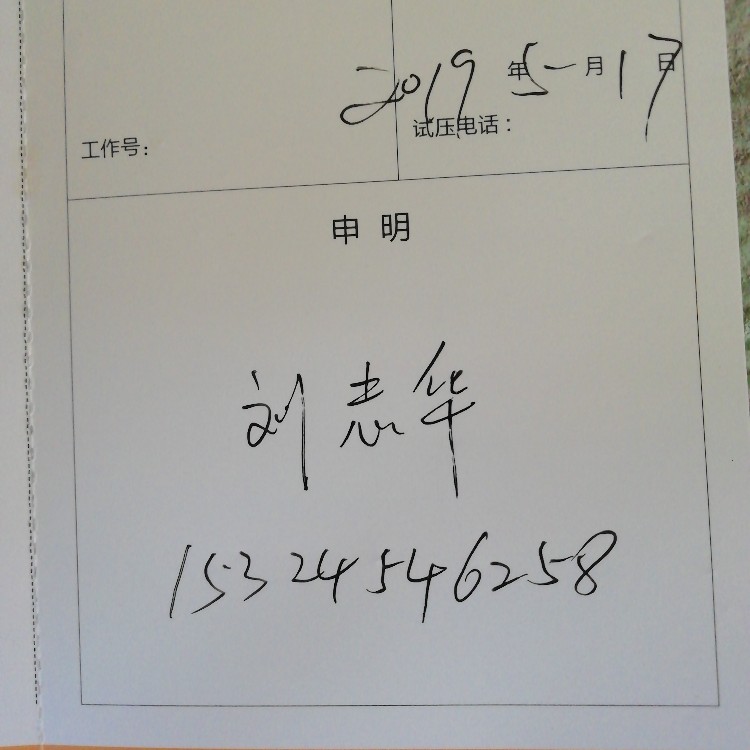 2019年5月17日
试压电话：
工作号：
申明
刘志华
15324546258